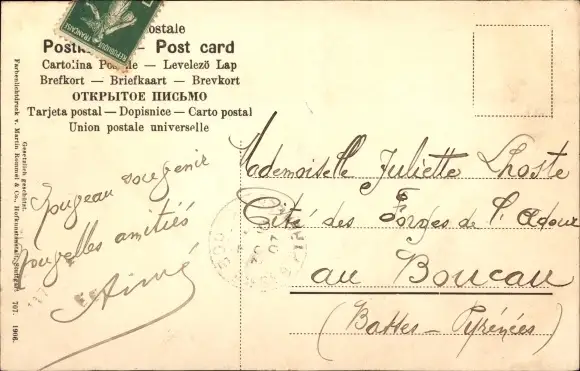 REPUBLIQUE FRANCAISE
ostale
Post — Post card
Cartolina Po le — Levelező Lap
Brefkort — Briefkaart — Brevkort
ОТКРЫТОЕ ПИСЬМО
Tarjeta postal — Dopisnice — Carto postal
Union postale universelle
Gesetzlich geschützt.
Farbenlichtdruck v. Martin Rommel & Co., Hofkunstanstalt, Stuttgart 707. 1906.
souvenir
amitiés
Aimé
Mademoiselle Juliette Lhoste
Cité des Forges de l'Adour
au Boucau
(Basses-Pyrénées)